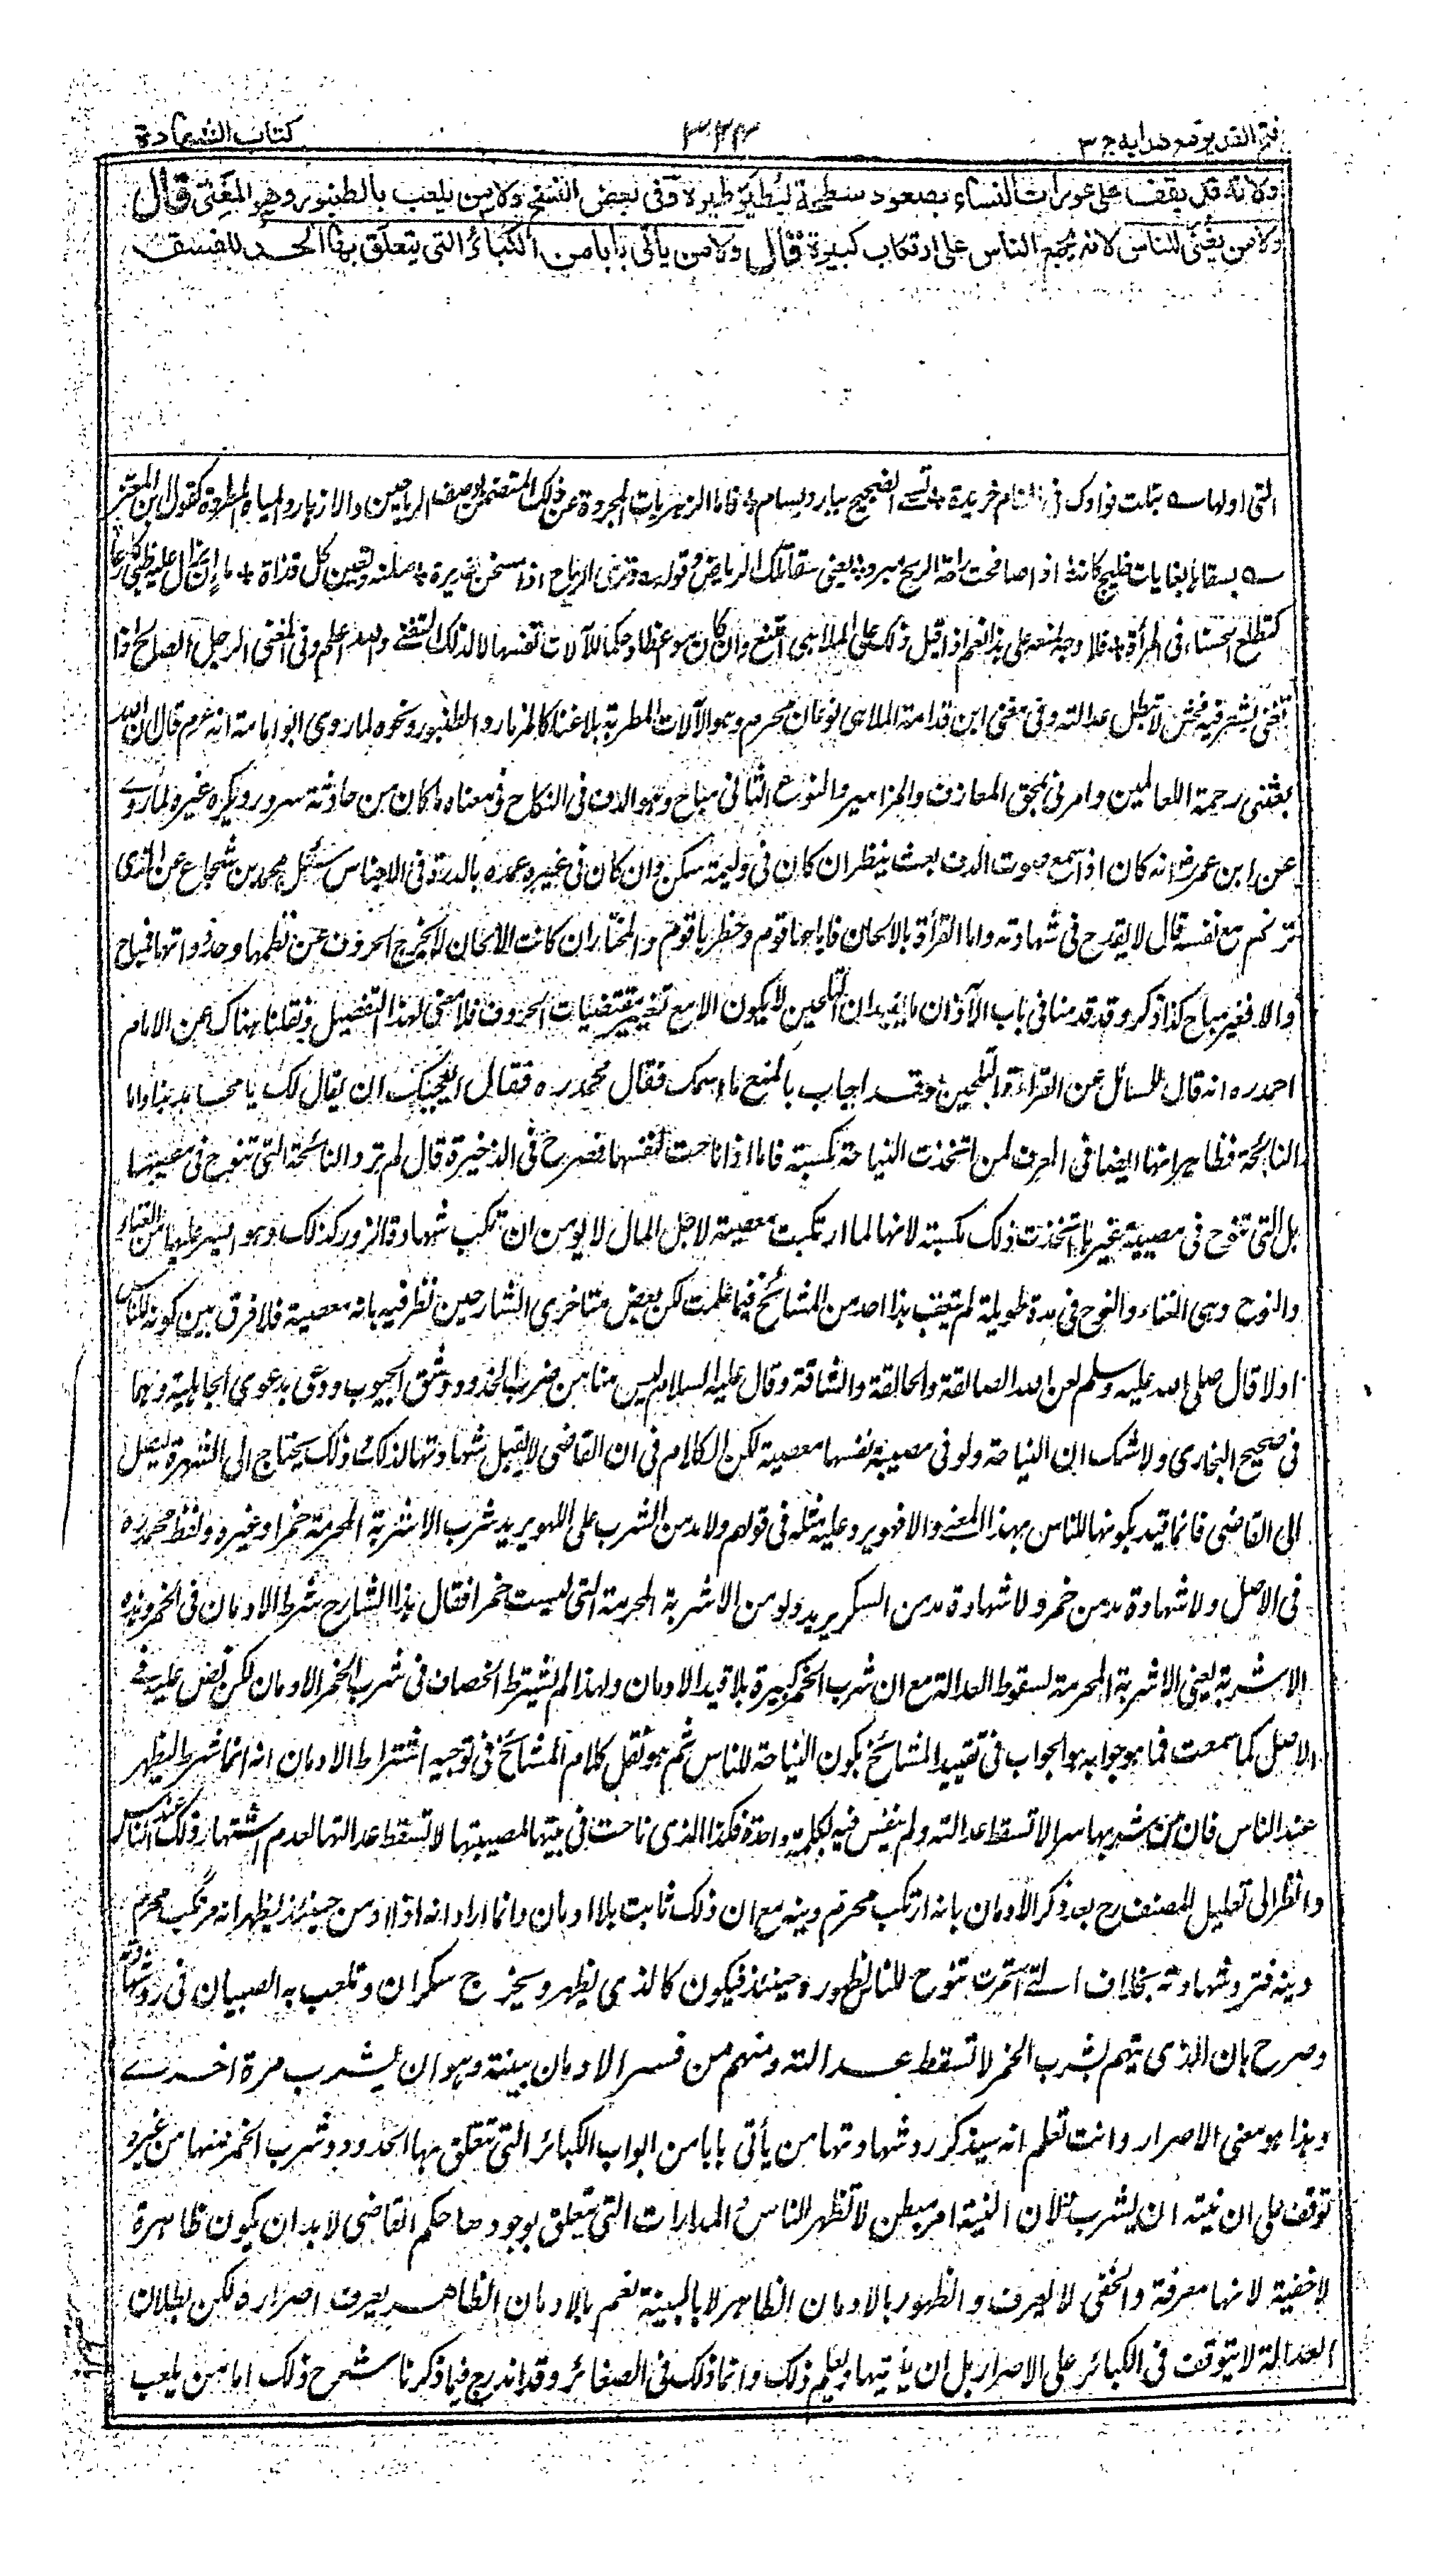 فتح القدير مع هدايه ج ٣
٣٢٤
كتاب الشهادة
ولانه قد يقف على عورات النساء بصعود سطحه ليطير طيره وفى بعض النسخ ولا من يلعب بالطنبور وهو المغنى قال
ولا من يغنى للناس لانه يجمع الناس على ارتكاب كبيرة قال ولا من يأتى بابا من الكبائر التى يتعلق بها الحد للفسق
التى اولها تبلت فوادك فى المنام خريدة تسقے الضجيع ببارد بسام فاما الزهريات المجردة عن ذلك المتضمن وصف الرياحين والازهار والمياه المطردة كقول ابن المعتز
سقاها بغابات خليج كانه اذا صافحت راحة الريح مبرد يعنى سقى تلك الرياض وقوله وترى الرياح اذا مسحن غديره صقلنه ونفين كل قذاة ما ان يزال عليه ظبى كارعا
كتطلع الحسناء فى المرأة فلا وجه لمنعه على هذا نعم اذا قيل ذلك على الملاهى امتنع وان كان مواعظا وحكما للآلات نفسها لا لذلك التغنے والله اعلم وفى المغنى الرجل الصالح اذا
تغنى بشعر فيه فحش لا تبطل عدالته وفى مغنى ابن قدامة الملاهى نوعان محرم وهو الآلات المطربة بلا غنا كالمزمار والطنبور ونحوه لما روى ابو امامة انه ع م قال ان الله
بعثنى رحمة اللعالمين وامرنى بمحق المعازف والمزامير والنوع الثانى مباح وهو الدف فى النكاح وفى معناه ما كان من حادثة سرور ويكره غيره لما روے
عن ابن عمر رض انه كان اذا سمع صوت الدف بعث ينظر ان كان فى وليمة سكن وان كان فى غيره عمده بالدرة وفى الاجناس سئل محمد بن شجاع عن الذى
ترنم مع نفسه قال لا يقدح فى شهادته واما القرأة بالالحان فاباحها قوم وحظرها قوم والمختار ان كانت الالحان لا تخرج الحروف عن نظمها وحذواتها فمباح
والا فغير مباح كذا ذكر وقد قدمنا فى باب الآذان ما يفيد ان التلحين لا يكون الا مع تغيير مقتضيات الحروف فلا معنى لهذا التفصيل ونقلنا هناك عن الامام
احمد ره انه قال للسائل عن القراءة بالتلحين وقد اجاب بالمنع ما اسمك فقال محمد ره فقال ايعجبك ان يقال لك يا محامد هذا واما
النائحة فظاهر انها ايضا فى العرف لمن اتخذت النياحة مكسبة فاما اذا ناحت لنفسها فصرح فى الذخيرة قال لم ترد النائحة التى تنوح فى مصيبتها
بل التى تنوح فى مصيبة غيرها اتخذت ذلك مكسبة لانها لما ارتكبت معصية لاجل المال لا يومن ان ترتكب شهادة الزور كذلك وهو ايسر عليها من الغناء
والنوح وهى الغناء والنوح فى مدة طويلة لم يتعقب هذا احد من المشائخ فيما علمت لكن بعض متاخرى الشارحين نظر فيه بانه معصية فلا فرق بين كونه للناس
اولا قال صلى الله عليه وسلم لعن الله الصالقة والحالقة والشاقة وقال عليه السلام ليس منا من ضرب الخدود وشق الجيوب ودعى بدعوى الجاهلية وهما
فى صحيح البخارى ولا شك ان النياحة ولو فى مصيبة نفسها معصية لكن الكلام فى ان القاضى لا يقبل شهادتها لذلك وذلك يحتاج الى الشهرة ليصل
الى القاضى فانما قيد بكونها للناس بهذا المعنے والا فهو يرد عليه مثله فى قولهم ولا مدمن الشرب على اللهو يريد شرب الاشربة المحرمة خمرا وغيره ولفظ محمد ره
فى الاصل ولا شهادة مدمن خمر ولا شهادة مدمن السكر يريد ولو من الاشربة المحرمة التى ليست خمرا فقال هذا الشارح شرط الادمان فى الخمر وهذه
الاشربة يعنى الاشربة المحرمة لسقوط العدالة مع ان شرب الخمر كبيرة بلا قيد الادمان ولهذا لم يشترط الخصاف فى شرب الخمر الادمان لكن نص عليه فے
الاصل كما سمعت فما هو جوابه هو الجواب فى تقييد المشائخ بكون النياحة للناس ثم هو نقل كلام المشائخ فى توجيه اشتراط الادمان انه انما شرط ليظهر
عند الناس فان من شربها سرا لا تسقط عدالته ولم يتنفس فيه بكلمة واحدة فكذا الذى ناحت فى بيتها لمصيبتها لا تسقط عدالتها لعدم اشتهار ذلك عند الناس
وانظر الى تعليل المصنف رح بعد ذكر الادمان بانه ارتكب محرم دينه مع ان ذلك ثابت بلا ادمان وانما اراد انه اذا ادمن حينئذ يظهر انه مرتكب محرم
دينه فترد شهادته بخلاف التے استمرت تنوح للناس لظهوره حينئذ فيكون كالذى يظهر ويخرج سكران وتلعب به الصبيان فى رد شهادته
وصرح بان الذى يتهم بشرب الخمر لا تسقط عدالته ومنهم من فسر الادمان بنيته وهو ان يشرب مرة اخرے
وهذا هو معنى الاصرار وانت تعلم انه سيذكر رد شهادتها من يأتى بابا من ابواب الكبائر التى تتعلق بها الحدود وشرب الخمر منها من غير
توقف على ان نيته ان يشرب لان النية امر مبطن لا تظهر للناس والمدارات التى يتعلق بوجودها حكم القاضى لا بد ان يكون ظاهرة
لا خفية لانها معرفة والخفى لا يعرف والظهور بالادمان الظاهر لا بالنية نعم بالادمان الظاهر يعرف اصراره لكن بطلان
العدالة لا يتوقف فى الكبائر على الاصرار بل ان يأتيها ويعلم ذلك وانما ذلك فى الصغائر وقد اندرج فيما ذكرنا شرح ذلك اما من يلعب